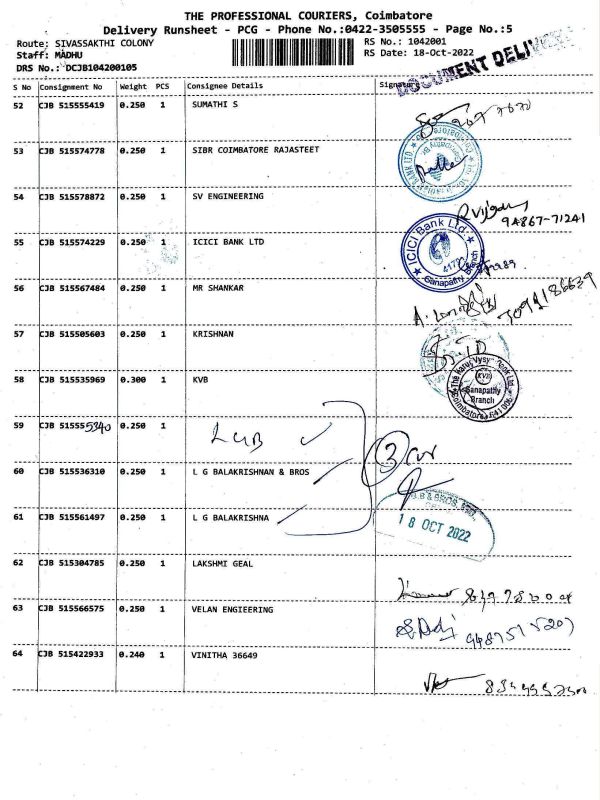 THE PROFESSIONAL COURIERS, Coimbatore
Delivery Runsheet - PCG - Phone No.:0422-3505555 - Page No.:5
Route: SIVASSAKTHI COLONY
Staff: MADHU
DRS No.: DCJB104200105
RS No.: 1042001
RS Date: 18-Oct-2022
DOCUMENT DELIVERED
S No Consignment No Weight PCS Consignee Details Signature
52 CJB 515555419 0.250 1 SUMATHI S
53 CJB 515574778 0.250 1 SIBR COIMBATORE RAJASTEET
54 CJB 515578872 0.250 1 SV ENGINEERING
94867-71241
55 CJB 515574229 0.250 1 ICICI BANK LTD
ICICI Bank Ltd.
Ganapathy Branch
56 CJB 515567484 0.250 1 MR SHANKAR
57 CJB 515505603 0.250 1 KRISHNAN
58 CJB 515535969 0.300 1 KVB
The Karur Vysya Bank Ltd.
KVB
Ganapathy
Branch
Coimbatore 641 006
59 CJB 515555340 0.250 1 LGB
60 CJB 515536310 0.250 1 L G BALAKRISHNAN & BROS
3
61 CJB 515561497 0.250 1 L G BALAKRISHNA
18 OCT 2022
62 CJB 515304785 0.250 1 LAKSHMI GEAL
63 CJB 515566575 0.250 1 VELAN ENGIEERING
64 CJB 515422933 0.240 1 VINITHA 36649